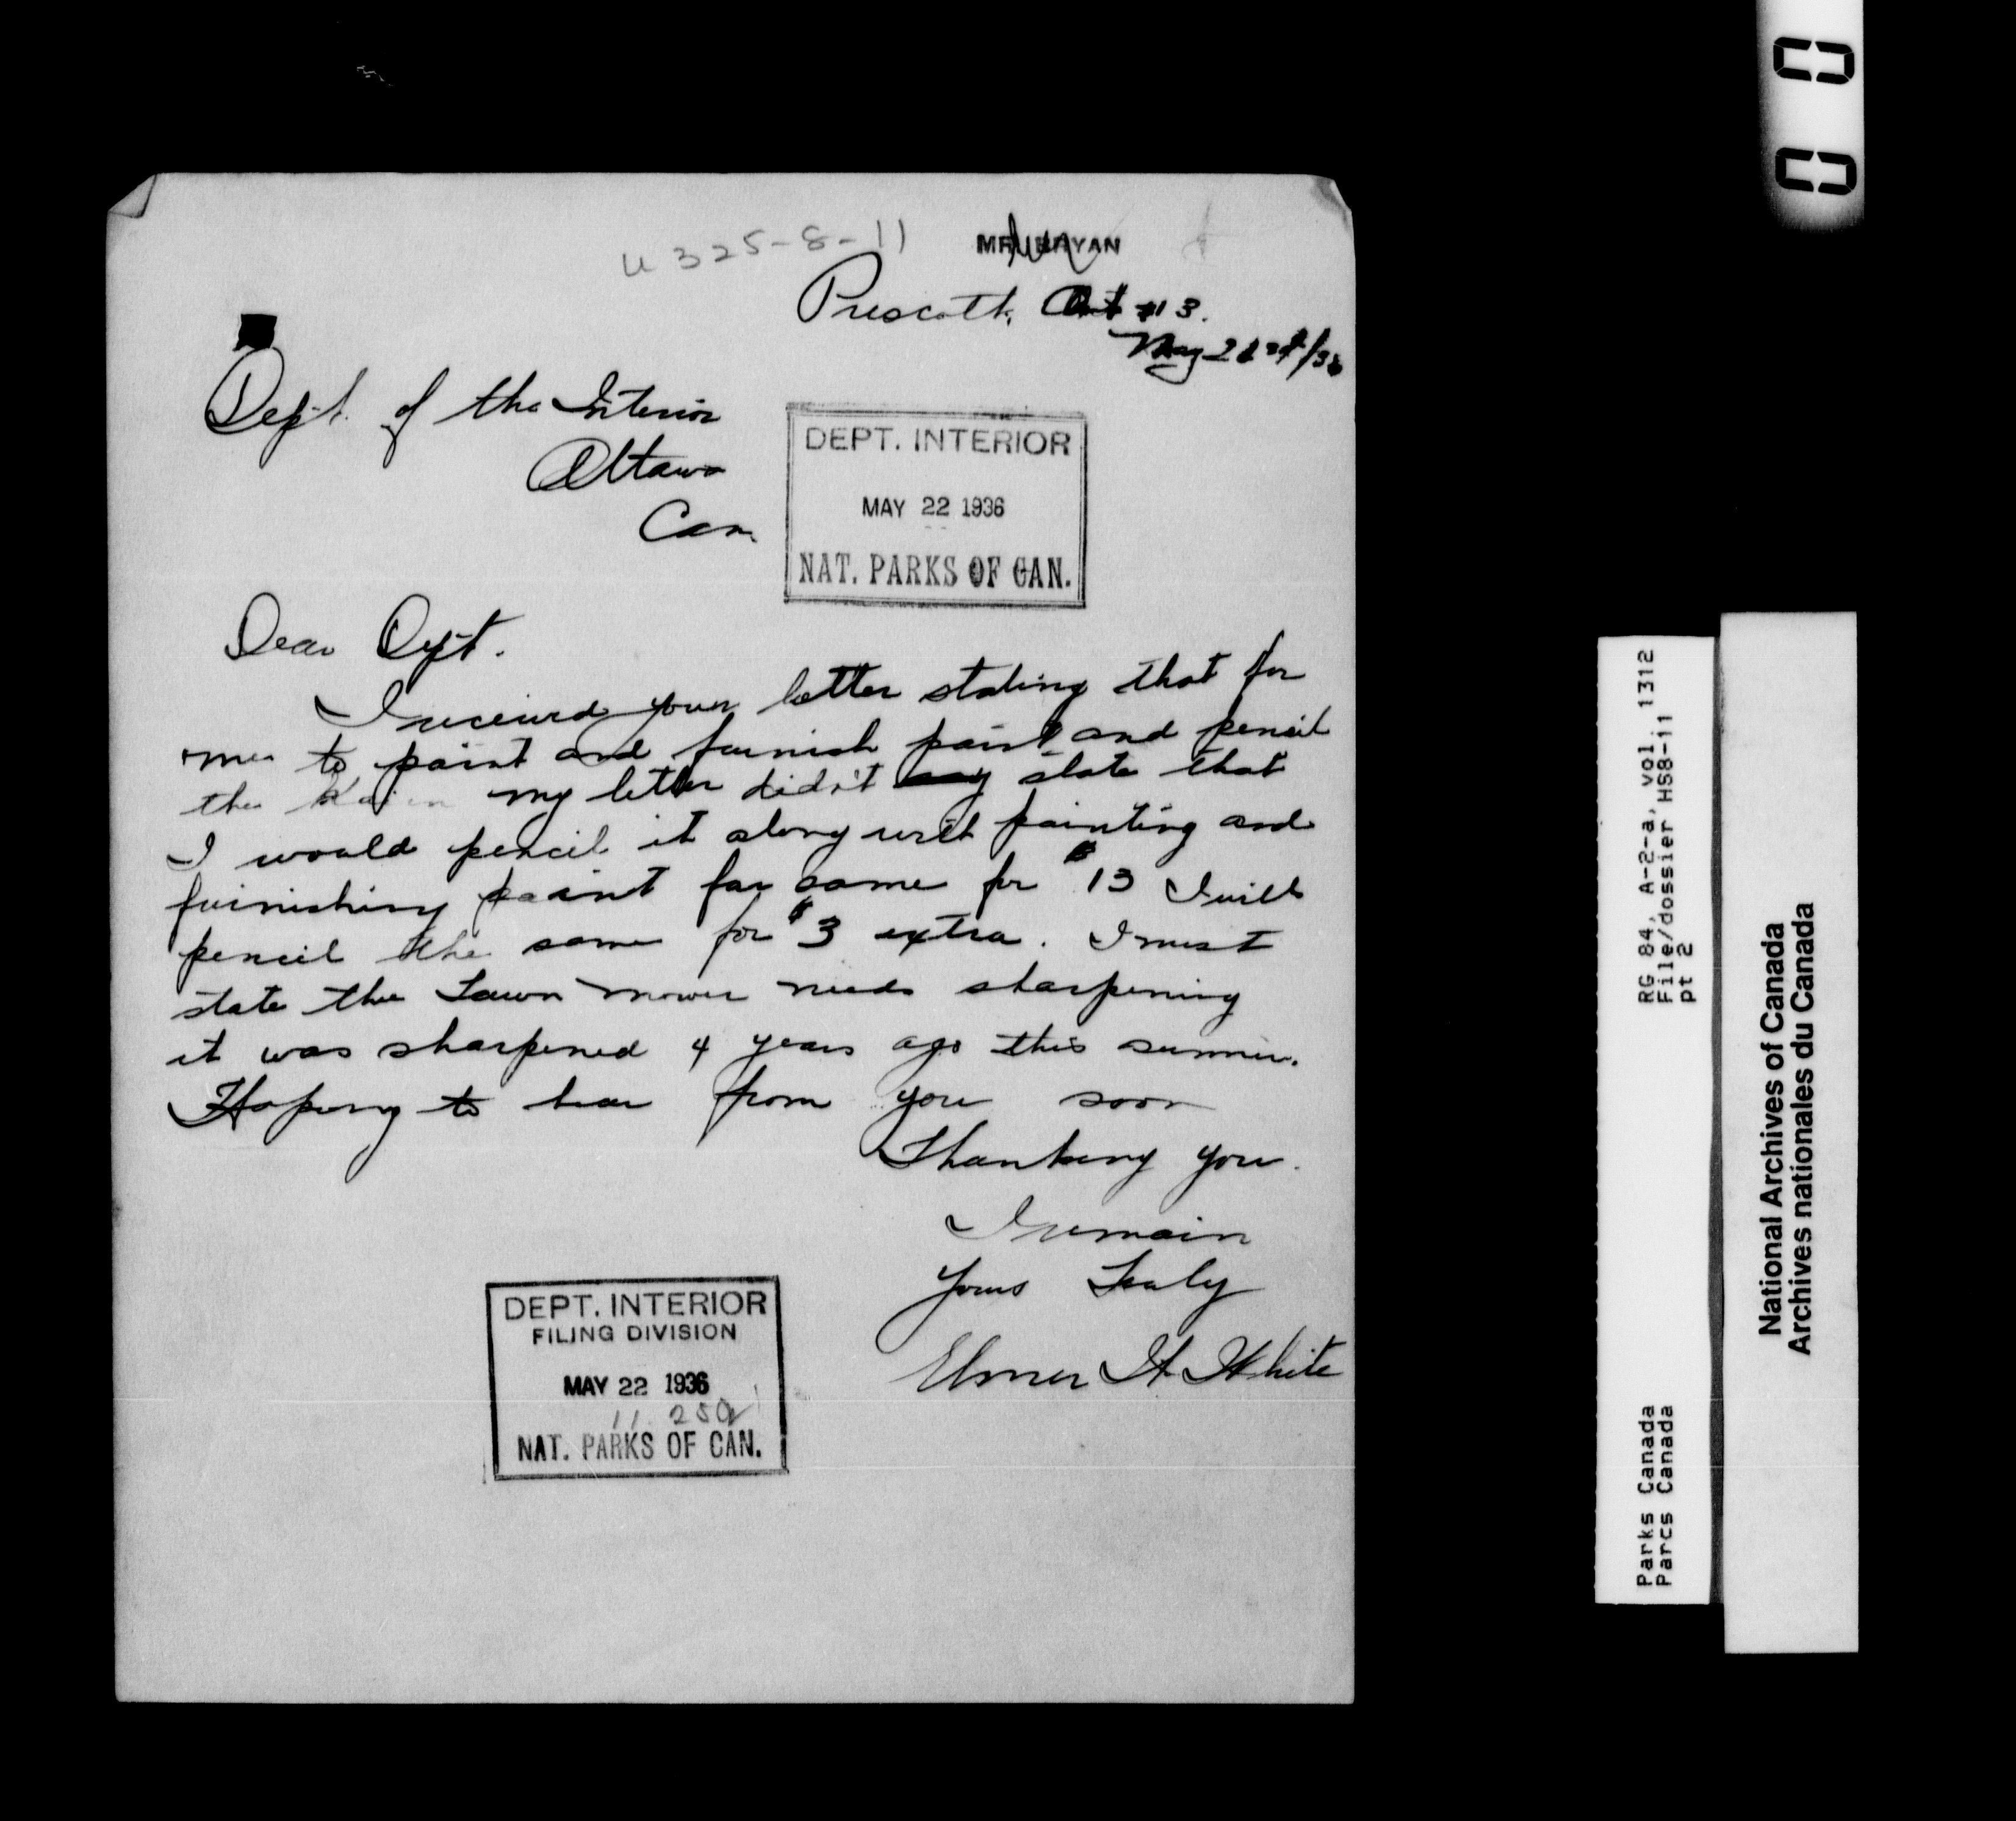 U 325-8-11
MR. BRYAN
Prescott, Ont #13.
May 21st/36
Dept. of the Interior
Ottawa
Can.
DEPT. INTERIOR
MAY 22 1936
NAT. PARKS OF CAN.
Dear Dept.
I received your letter stating that for
me to paint and furnish paint and pencil
the my letter didn't say state that
I would pencil it along with painting and
furnishing paint for same for $13 I will
pencil the same for $3 extra. I must
state the Lawn mower needs sharpening
it was sharpened 4 years ago this summer.
Hoping to hear from you soon
Thanking you.
I remain
Yours Truly
Elmer H. White
DEPT. INTERIOR
FILING DIVISION
MAY 22 1936
NAT. PARKS OF CAN.
00
RG 84, A-2-a, vol. 1312
File/dossier HS8-11
pt 2
Parks Canada
Parcs Canada
National Archives of Canada
Archives nationales du Canada